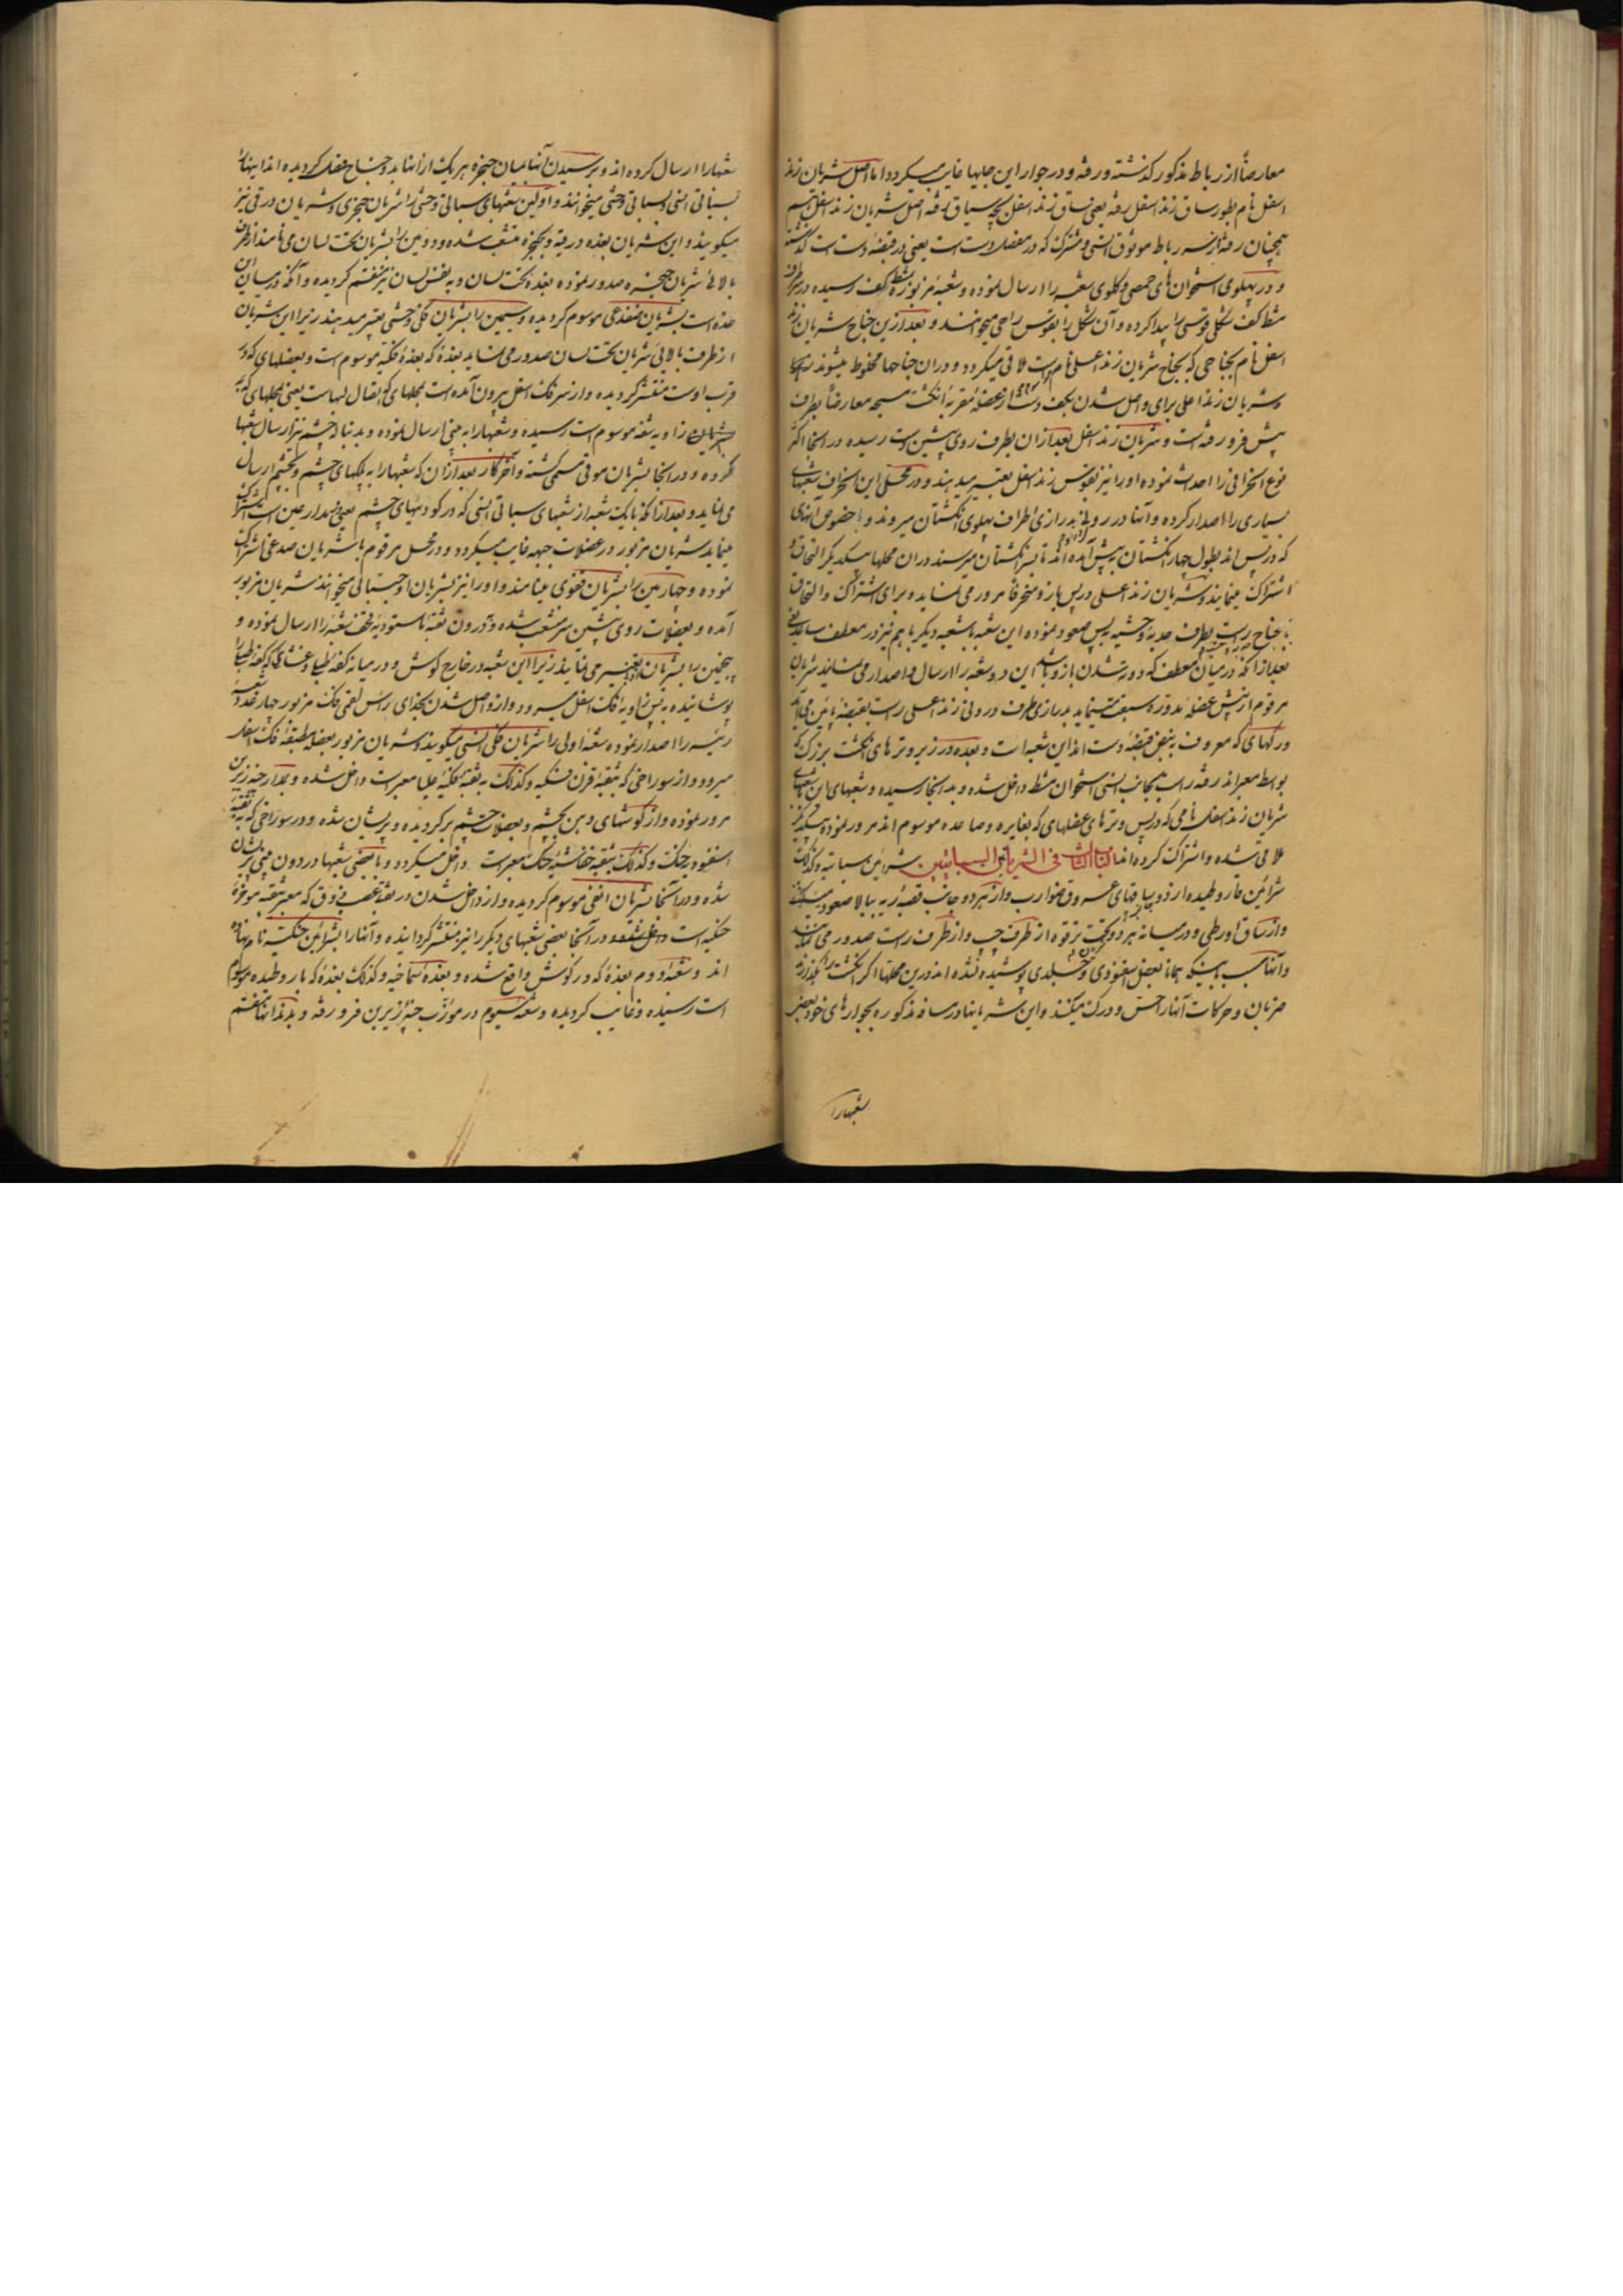 معارضاً از رباط مذکور گذشته و رفته و در جوار این جایها غایب میگردد اما اصل شریان زند
اسفل نام بطور ساق زند اسفل رفته یعنی ساق زند اسفل بچه سیاق رفته اصل شریان زند اسفل
همچنان رفته از سه رباط موثوق انسی و مشترک که در مفصل دست است یعنی در قبضهٔ دست است گذشته
و در پهلوی استخوان های حمصی و کلوی شعبه را ارسال نموده و شعبهٔ مزبوره بمشط کف رسیده در
مشط کف شکلی قوسی را پیدا کرده و آن شکل را بقوس راحی میخوانند و بعد ازین جناح شریان زند
اسفل نام بجناحی که بجناح شریان زند اعلی نام است ملاقی میگردد و در ان جناحها مخلوط میشوند
و شریان زند اعلی برای واصل شدن بکف دست از عضلهٔ مقربهٔ انگشت مسبحه معارضاً بطرف
پیش فرو رفته است و شریان زند اسفل بعد ازان بطرف روی پشین دست رسیده در انجا اکثر
نوع انحرافی را احداث نموده او را نیز بقوس زند اسفل تعبیر میدهند و در محل این انحراف شعبهای
بسیاری را اصدار کرده و آنها در رو بدرازی اطراف پهلوی انگشتان میروند و بخصوص انهای
که در پس اند بطول چهار انگشتان به پیش آمده اند تا بسر انگشتان میرسند در ان محلها بیکدیگر التحاق و
اشتراک مینمایند و شریان زند اعلی در پس بارز و منحرفاً مرور می نماید و برای اشتراک و التحاق
جناح راست بطرف حدبهٔ وحشیه پس صعود نموده این شعبه با شعبه دیگر باهم نیز در معطف ساعد
بعد از انکه در میان معطف که دورتر شدن بازو باشد این دو شعبه را ارسال و اصدار می نمایند شریان
مرقوم از پیش عضلهٔ مدوره سبعت مینماید بدرازی طرف درونی زند اعلی راست بقبضه پائین می آید
و رگهای که معروف به نبض قبضهٔ دست اند این شعبه است و بعده در زیر وترهای انگشت بزرگ که
بواسط معبر اند رفته راست بجانب انسی استخوان مشط داخل شده و به انجا رسیده و شعبهای این شعبهای
شریان زند اسفل نامی که در پس وترهای عضلهای که بغایره و صاعده موسوم اند مرور نموده بیکدیگر
ملاقی شده و اشتراک کرده اند الباب الثالث فی الشریانین السباتیین شرائین سباتیه و کذلک
شرائین فاروطیده از دو ساقهای عروق ضوارب و از هر دو جانب قصبه ریه ببالا صعود میکنند
و از ساق اورطی و در میانه هر دو تحت ترقوه از طرف چپ و از طرف راست صدور می نمایند
و آنها بسبب اینکه همانا بعضل سفنودی و جلدی پوشیده نشده اند درین محلها اگر انگشت را بگذارند
ضربان و حرکات آنها را حس و درک میکنند و این شریانها در مسافه مذکوره بجوارهای خود بعض
شعبها را
شعبها را ارسال کرده اند و برسیدن آنها بمیان حنجره هر یک از انها بدو جناح منفصل کردیده اند اینها را
بسباتی انسی و بسباتی وحشی میخوانند و اولین شعبهای سباتی وحشی را شریان حنجری و شریان درقی نیز
میگویند و این شریان بغده درقیه و بحنجره منشعب شده و دومین را بشریان تحت لسان می نامند از طرف
بالائ شریان حنجره صدور نموده بغده تحت لسان و به نفس لسان نیز منقسم کردیده و آنکه در میان این
غده است بشریان ضفدعی موسوم کردیده و سیمین را بشریان فکی وحشی تعبیر میدهند زیرا این شریان
از طرف بالائی شریان تحت لسان صدور می نماید بغدهٔ که بغدهٔ فکیه موسوم است و بعضلهای که در
قرب اوست منتشر کردیده و از سر فک اسفل بیرون آمده است بمحلهای که بقتال لبهاست یعنی بمحلهای که
بشریان زاویه شفه موسوم است رسیده و شعبها را به بینی ارسال نموده و بدنباله چشم نیز ارسال شعبها
کرده و در انجا بشریان موقی مسمی گشته و آخر کار بعد ازان که شعبها را به پلکهای چشم و بچشم ارسال
می نماید و بعد از انکه با یک شعبه از شعبهای سباتی انسی که در کودیهای چشم یعنی در مدار عین است اشتراک
مینماید شریان مزبور در عضلات جبهه غایب میگردد و در محل مرقوم با شریان صدغی اشتراک
نموده و چهارمین را بشریان قفوی مینامند و او را نیز بشریان اوجستالی میخوانند شریان مزبور
آمده و بعضلات روی پشین سر منشعب شده و درون ثقبه ماستودیه قحف شعبهٔ را ارسال نموده و
پنجمین را بشریان تعبیر می نمایند زیرا این شعبه در خارج گوش و در میانه کفهٔ طبیا و غشای که کفهٔ طبیا را
پوشانیده به پس زاویهٔ فک اسفل میرود و از واصل شدن بحذای رأس لقمی فک مزبور چهار عدد شعبه
رئیسه را اصدار نموده شعبهٔ اولی را شریان فکی انسی میگویند و شریان مزبور بعضلهٔ مطبقهٔ فک اسفل
میرود و از سوراخی که بثقبهٔ قرن فنکیه و کذلک به ثقبهٔ فکیهٔ علیا معبر است داخل شده و بمدار حنهٔ زیرین
مرور نموده و از گوشهای دهن بچشم و بعضلات چشم برگردیده و پریشان شده و در سوراخی که به ثقبهٔ
اسفنودیه حنکت و کذلک بثقبه خفاشیهٔ حنک معبر است داخل میگردد و با بعضی شعبها در درون بینی پریشان
شده و در آنجا بشریان انفی موسوم کردیده و از داخل شدن در ثقبهٔ عقب ذوق که معبر بثقبه موخرهٔ
حنکیه است داخل شده و در آنجا بعضی شعبهای دیگر را نیز منتشر گردانیده و آنها را بشرائین حنکیه نام نهاده
اند و شعبهٔ دوم بغدهٔ که در گوش واقع شده و بغدهٔ سماخیه و کذلک بغدهٔ که باروطیده موسوم
است رسیده و غایب کردیده و شعبهٔ سیوم در مورب حنهٔ زیرین فرو رفته و بدندانها منقسم